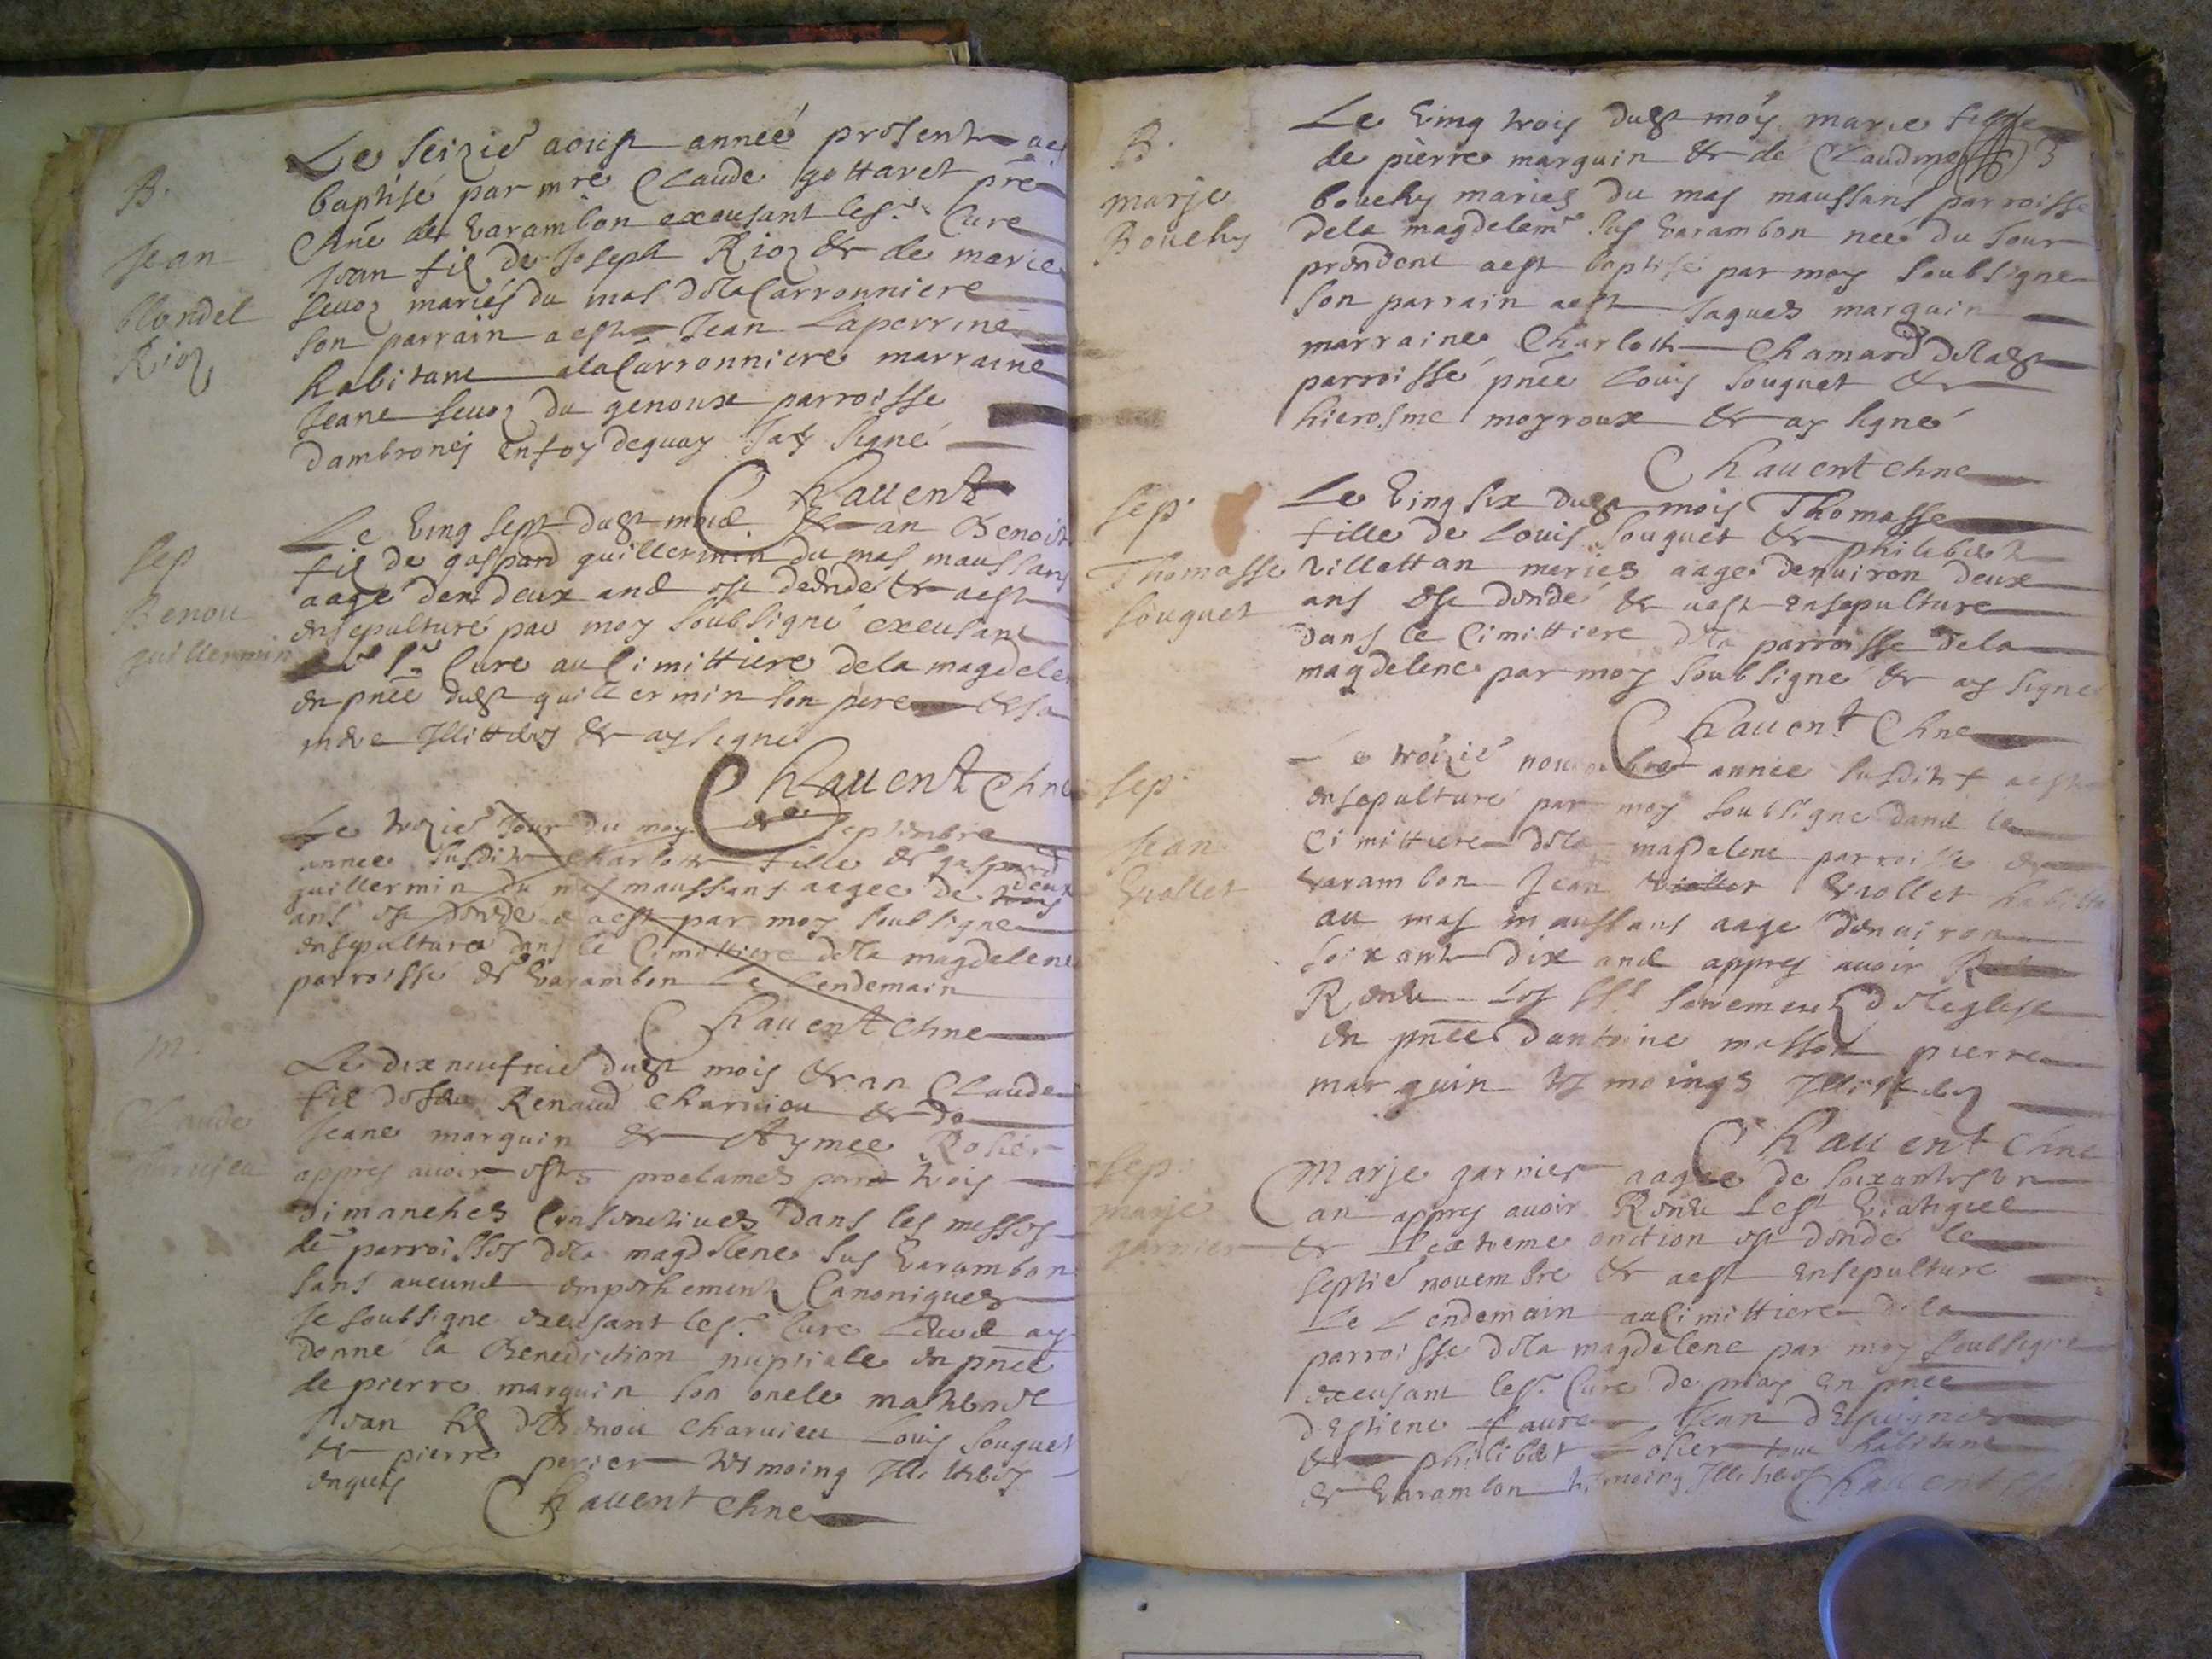 B.
Jean
blondel
Rioz
Le seizie aoust année presente aest
baptisé par mre Claude gottaret pre
Chne de Varambon exeusant le sr Cure
Jean fil de Joseph Rioz & de marie
seuoz mariés du mas dela Carronniere
son parrain aest Jean Laperrine
habitant ala Carronniere marraine
Jeane seuoz du genoux parroisse
dambronej en foy dequoy Jay signé
Chauent
Sep
Benoit
guillermin
Le ving sept dust mois & an Benoit
fil de gaspard guillermin du mas maussans
aage den deux ans est decedé & aest
ensepulturé par moy soubsigné exeusant
sr Cure au Cimittiere dela magdelene
en pnce dust guillermin son pere & sa
mere Illitteres & ay signe
Chauent Chne
Le trozie Jour du moy de septembre
annee susdite Charlotte fille de gaspard
guillermin du mas maussans aagee de trois deux
ans est decede & aest par moy soubsigne
ensepulture dans le Cimittiere dela magdelene
parroisse de Varambon Le Lendemain
Chauent Chne
m.
Claude
Charuieu
Le dix neufuie dust mois & an Claude
fil de feu Renaud Charuieu & de
Jeane marguin & Aymee Rosier
appres auoir estes proclames par trois
dimanches Consecutiues dans les messes
de parroisses dela magdelene sus Varambon
sans aucune empeschement Canoniques
Je soubsigne exeusant le sr Cure Leur ay
donne la Benediction nuptiale en pnce
de pierre marguin son oncle
Jean fil de Benoit Charuieu Louis souguet
& pierre perier tesmoing Illitteres
enquis
Chauent Chne
B.
marje
Bouchy
Le ving trois dust moys marie fille
de pierre marguin & de Claudine 3
bouchy mariez du mas maussans parroisse
dela magdelene sus Varambon neé du Jour
precedent aest baptisé par moy soubsigne
son parrain aest Jaques marguin
marraine Charlotte Chamard delast
parroissé pnce Louis souguet &
hierosme moyroux & ay signé
Chauent Chne
sep.
Thomasse
souguet
Le Ving six dust mois Thomasse
fille de Louis souguet & philiberte
Villettan mariez aage denuiron deux
ans est decedé & aest ensepulture
dans le Cimittiere dela parroisse dela
magdelene par moy soubsigné & ay signe
Chauent Chne
sep.
Jean
Viollet
Le troizie nouembre annee susditte aest
ensepulturé par moy soubsigne dans le
Cimittiere dela magdelene parroisse de
Varambon Jean Viollet Viollet habitta
au mas maussans aage denuiron
soixante dix ans appres auoir
Receu Les sts sacrements del eglise
en pnce dantoine masson pierre
marguin tesmoings Illitteres
Chauent Chne
Sep.
marje
garnier
Marje garnier aagee de soixante
an appres auoir Receu Le st Viatique
& Lextreme onction est decedé le
septie nouembre & aest ensepulture
Le Lendemain au Cimittiere dela
parroisse dela magdelene par moy soubsigne
exeusant le sr Cure de priay en pnce
destiene faure Jean
& philibert Losier tous habitant
de Varambon tesmoing Illiteres Chauent